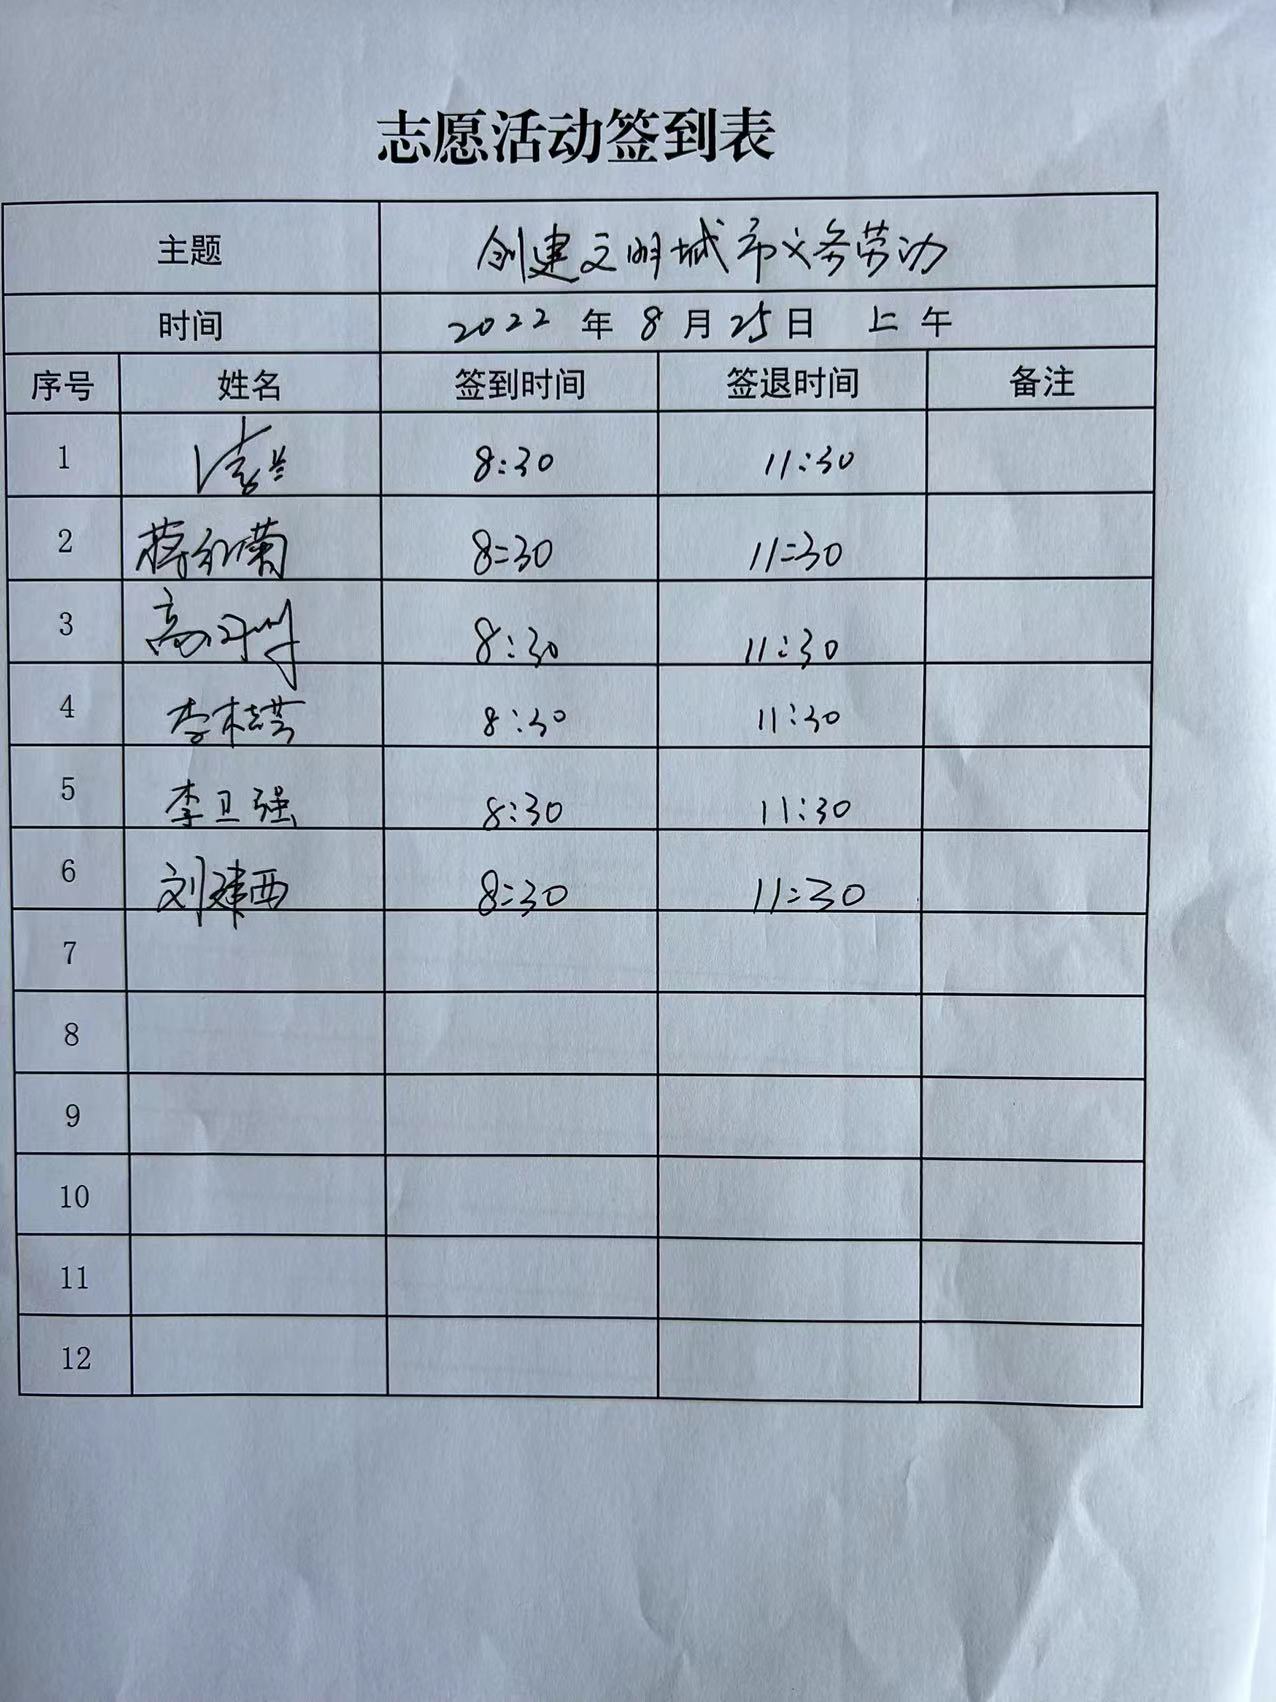 志愿活动签到表
主题 创建文明城市义务劳动
时间 2022 年 8 月 25 日 上 午
序号 姓名 签到时间 签退时间 备注
1 8:30 11:30
2 蒋红菊 8:30 11:30
3 高 8:30 11:30
4 李桂芸 8:30 11:30
5 李卫强 8:30 11:30
6 刘建西 8:30 11:30
7
8
9
10
11
12